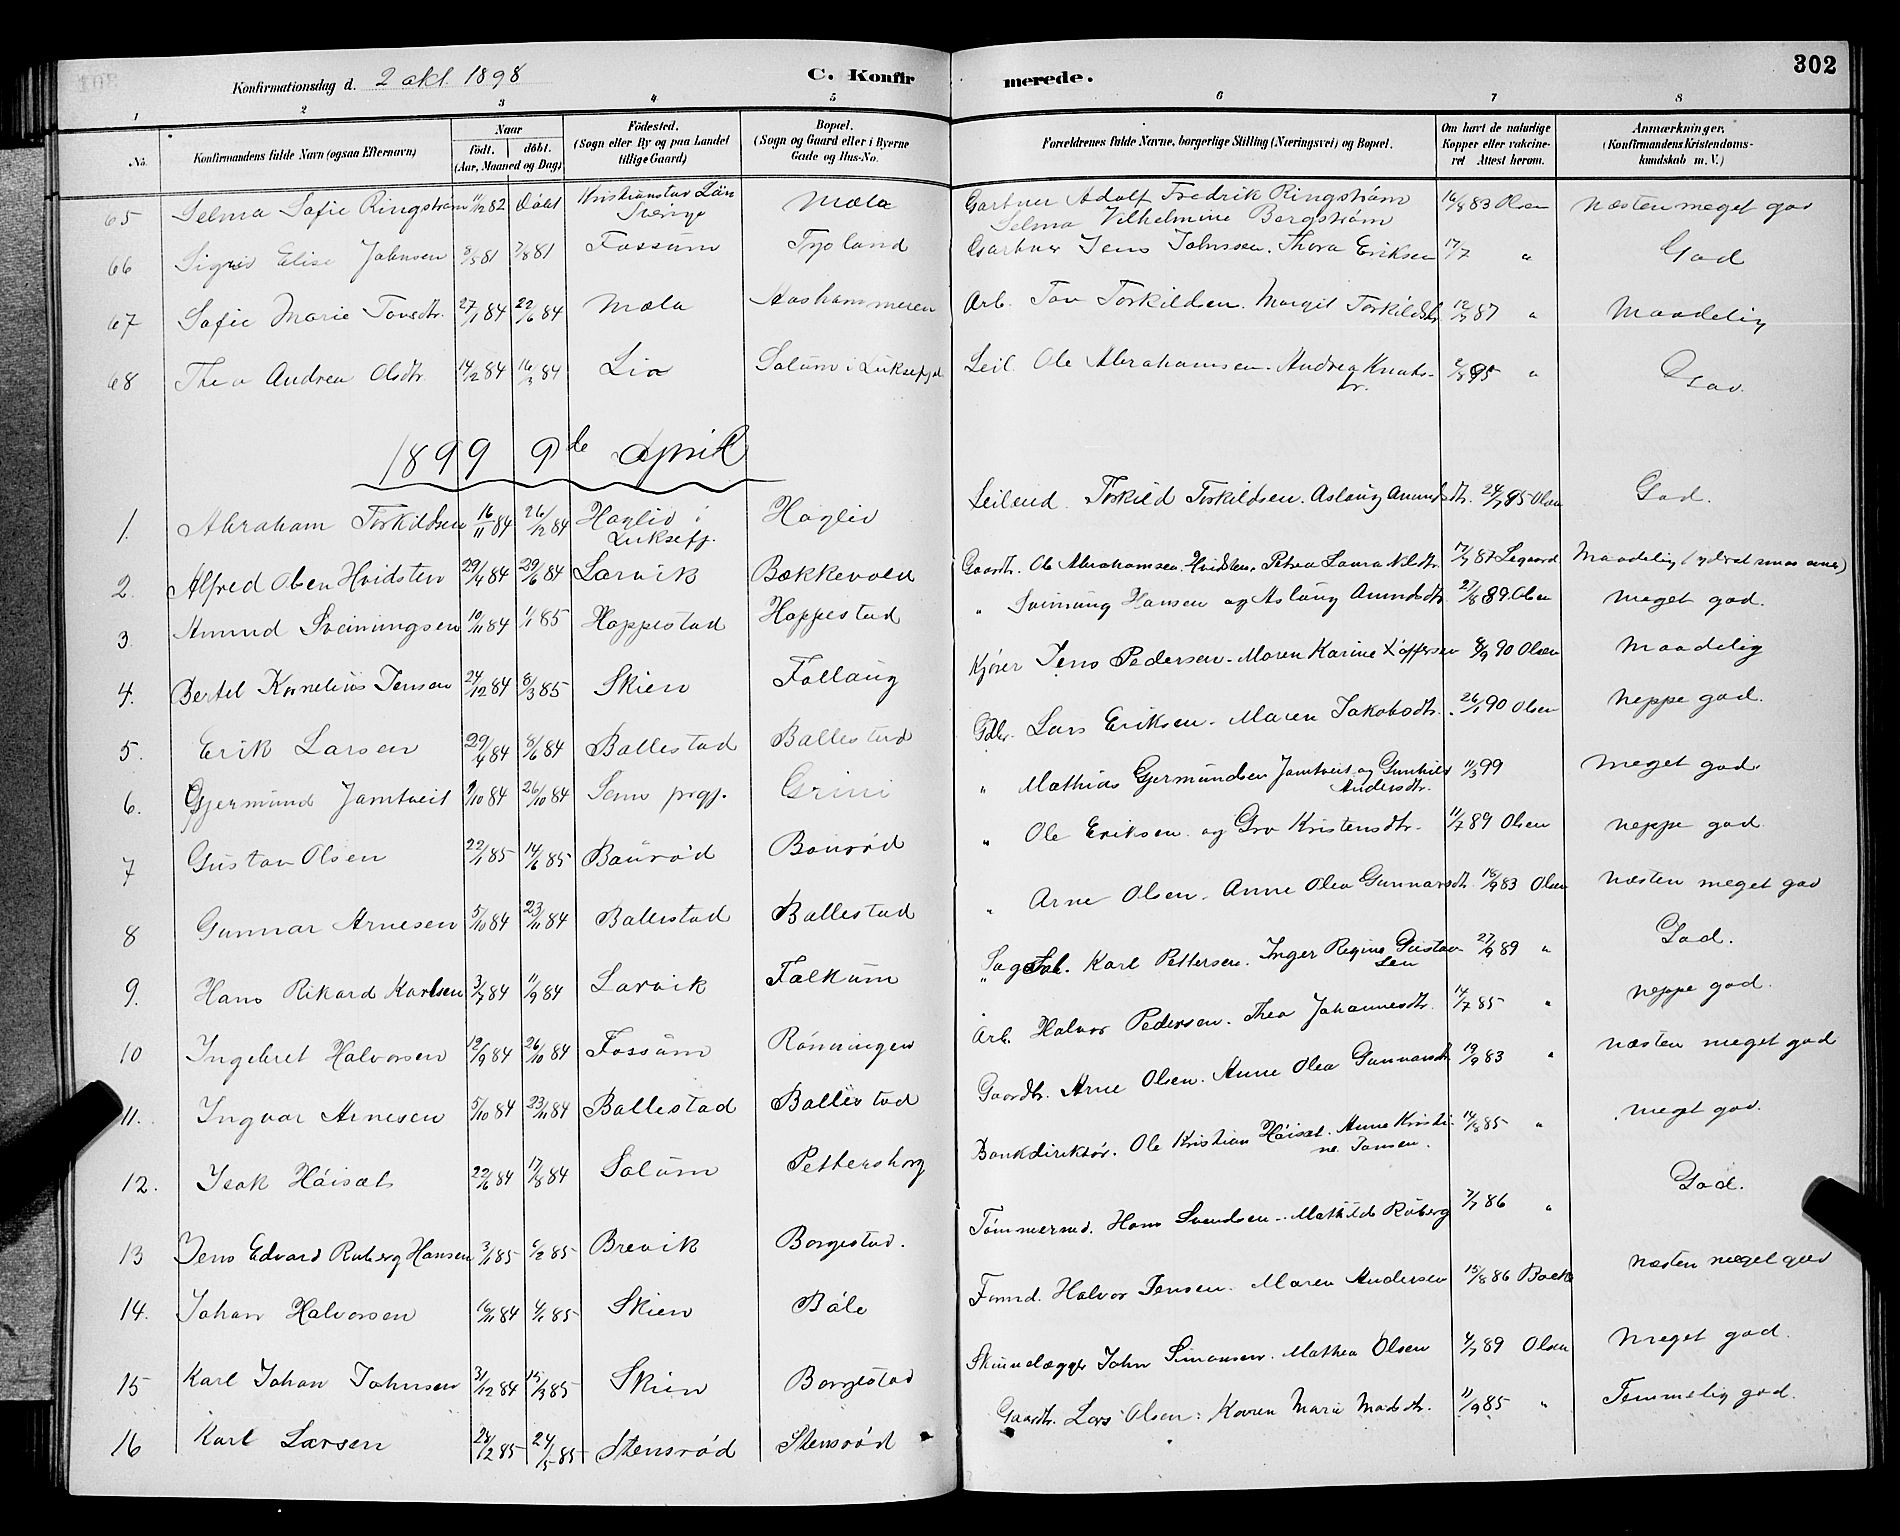 302
Konfirmationsdag d. 2 okt. 1898 C. Konfir merede.
1 2 3 4 5 6 7 8
No. Konfirmandens fulde Navn (ogsaa Efternavn) Naar födt. döbt. (Aar, Maaned og Dag) Födested. (Sogn eller By og paa Landet tillige Gaard) Bopæl. (Sogn og Gaard eller i Byerne Gade og Hus-No. Forældrenes fulde Navne, borgerlige Stilling (Næringsvei) og Bopæl. Om havt de naturlige Kopper eller vakcineret Attest herom. Anmærkninger. (Konfirmandens Kristendomskundskab m. V.)
65 Selma Sofie Ringström 11/12 82 Döbt Kristianstav Län Mæla Gartner Adolf Fredrik Ringström 16/8 83 Olsen Næsten meget god
Selma Vilhelmine Bergström
66 Sigrid Elise Johnsen 3/5 81 7/8 81 Fossum Fjoland Gartner Jens Johnsen. Thora Eriksen 17/7 " God
67 Sofie Marie Tovsdtr. 27/1 84 22/6 84 Mæla Aashammeren Arb. Tov Torkildsen. Margit Torkildsdtr 12/7 87 " Maadelig
68 Thea Andrea Olsdtr. 14/2 84 16/3 84 Lia Solum i Luksefjel Leil. Ole Abrahamsen. Andrea Knuts- 95 " God.
dtr.
1899 9de April
1. Abraham Torkildsen 16/11 84 26/12 84 Hoglid i Hoglid Leilend. Torkild Torkildsen. Aslaug Amundsdtr. 24/7 95 Olsen God.
Luksefj.
2. Alfred Olsen Hvidsten 29/4 84 29/6 84 Larvik Bækkevold Gaardbr. Ole Abrahamsen Hvidsten. Petrea Laura Nilsdtr. 17/7 87 Legaard Maadelig
3. Amund Sveinungsen 10/11 84 1/1 85 Hoppestad Hoppestad " Sveinung Hansen og Aslaug Amundsdtr. 27/8 89 Olsen meget god.
4. Bertel Kornelius Jensen 24/12 84 8/3 85 Skien Follaug Kjører Jens Pedersen. Maren Karine X'offersen 8/9 90 Olsen Maadelig
5. Erik Larsen 29/4 84 8/6 84 Ballestad Ballestad Gdbr. Lars Eriksen. Maren Jakobsdtr. 26/9 90 Olsen neppe god.
6. Gjermund Jamtveit 9/10 84 26/10 84 Sem prgj. Grini " Mathias Gjermundsen Jamtveit og Gunhild 11/3 99 meget god.
Andersdtr.
7 Gustav Olsen 22/1 85 14/6 85 Baurød Baurød " Ole Eriksen og Gro Kristensdtr. 11/7 89 Olsen neppe god
8 Gunnar Arnesen 5/10 84 23/11 84 Ballestad Ballestad " Arne Olsen. Anne Olea Gunnarsdtr. 18/9 83 Olsen Næsten meget god
9. Hans Rikard Karlsen 3/7 84 11/9 84 Larvik Falkum Karl Pettersen. Inger Regine Gustav 27/9 89 " God.
sen
10 Ingebret Halvorsen 12/9 84 26/10 84 Fossum Rønningen Arb. Halvor Pedersen. Thea Johannesdtr. 14/7 85 " neppe god.
11. Ingvar Arnesen 5/10 84 23/11 84 Ballestad Ballestad Gaardbr. Arne Olsen. Anne Olea Gunnarsdtr 19/9 83 " næsten meget god
12. Isak Høisæt 22/6 84 17/8 84 Solum Pettersborg Bankdirektør. Ole Kristian Høisæt. Anne Kristi- 14/8 85 " meget god.
ne Jansen.
13 Jens Edvard Ruberg Hansen 3/1 85 6/2 85 Brevik Borgestad. Tømmermd. Hans Svendsen. Mathilde Ruberg 7/7 86 " God.
14. Johan Halvorsen 16/11 84 4/1 85 Skien Bøle Formd. Halvor Jensen. Maren Andersen 15/8 86 Næsten meget god
15 Karl Johan Johnsen 31/12 84 15/3 85 Skien Borgestad Skinnelægger John Simonsen. Mathea Olsen 4/7 89 Olsen Meget god.
16 Karl Larsen 28/2 85 24/5 85 Stensrød Stensrød Gaardbr. Lars Olsen: Karen Marie Madsdtr. 11/9 85 " Temmelig god.